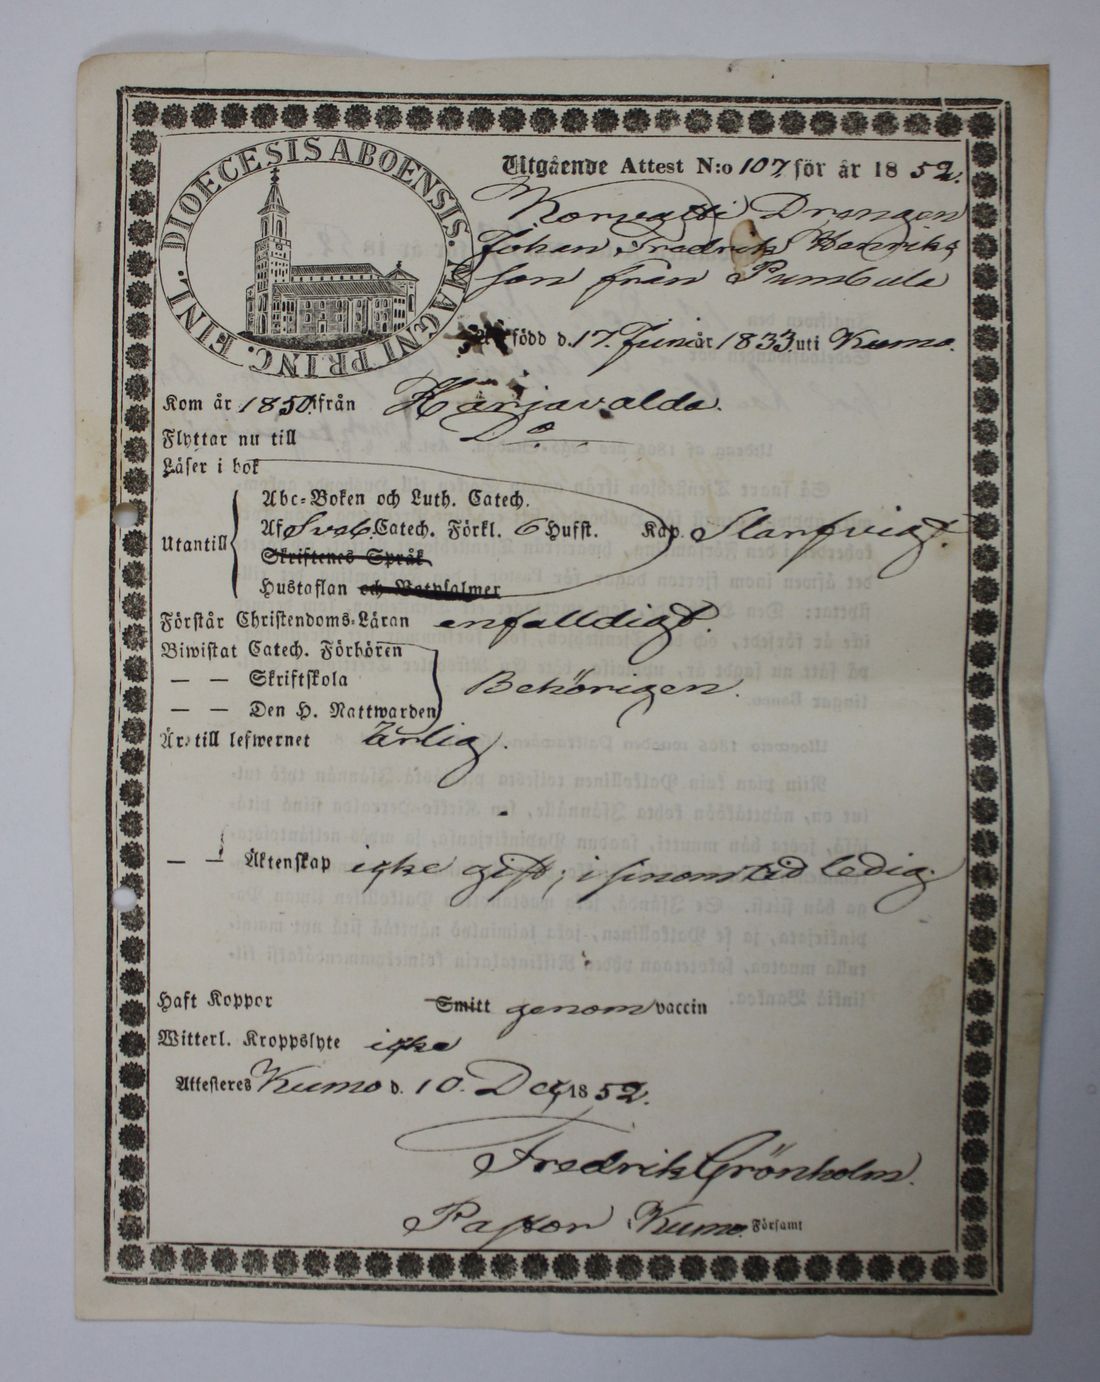 DIOECESIS ABOENSIS. MAGNI PRINC. FINL.
Utgående Attest N:o 107 för år 1852.
Drengen
Johan Fredrik Henriks
son från Pumbula
född d. 17. Juni år 1833 uti Kumo.
Kom år 1850 ifrån Harjavalda.
Flyttar nu till Do
Läser i bok
Utantill
Abc-Boken och Luth. Catech.
Af Sveb. Catech. Förkl. 6 Hufst. Kap. Slarfvigt.
Skriftenes Språk
Hustaflan och Botpsalmer
Förstår Christendoms-Läran enfalldigt.
Biwistat Catech. Förhören
— — Skriftskola Behörigen.
— — Den H. Nattwarden
Är till lefwernet Ärlig.
— — Äktenskap icke gift; i sinom tid ledig.
Haft Koppor Smitt genom vaccin
Witterl. Kroppslyte icke
Attesteres Kumo d. 10. Dec. 1852.
Fredrik Grönholm.
Pastor i Kumo Församl